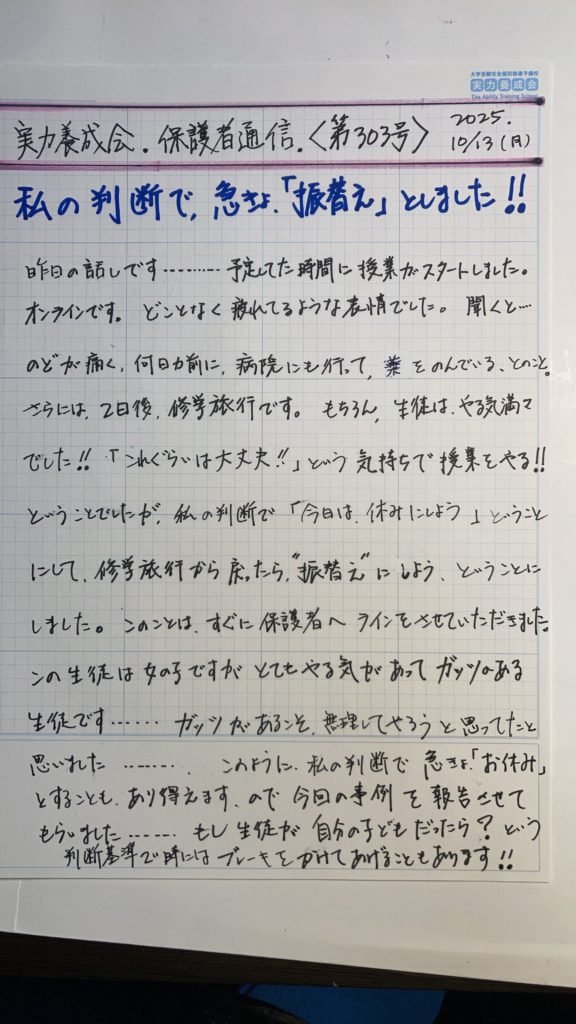 大学受験完全個別指導予備校
実力養成会
The Ability Training School
実力養成会.保護者通信.〈第303号〉 2025. 10/13(月)
私の判断で、急きょ、「振替え」としました!!
昨日の話しです……… 予定してた時間に授業がスタートしました。
オンラインです。 どことなく疲れてるような表情でした。 聞くと…
のどが痛く、何日カ前に、病院にも行って、薬をのんでいる、とのこと。
さらには、2日後、修学旅行です。 もちろん、生徒は、やる気満々
でした!! 「これぐらいは大丈夫!!」という気持ちで授業をやる!!
ということでしたが、私の判断で「今日は、休みにしよう」ということ
にして、修学旅行から戻ったら、"振替え"にしよう、ということに
しました。このことは、すぐに保護者へラインをさせていただきました。
この生徒は女の子ですがとてもやる気があってガッツのある
生徒です…… ガッツがあるこそ、無理してやろうと思ってたと
思いました ………、 このように、私の判断で急きょ、「お休み」
とすることも、あり得えます、ので今回の事例を報告させて
もらいました…… もし生徒が自分の子どもだったら?という
判断基準で時にはブレーキをかけてあげることもあります!!